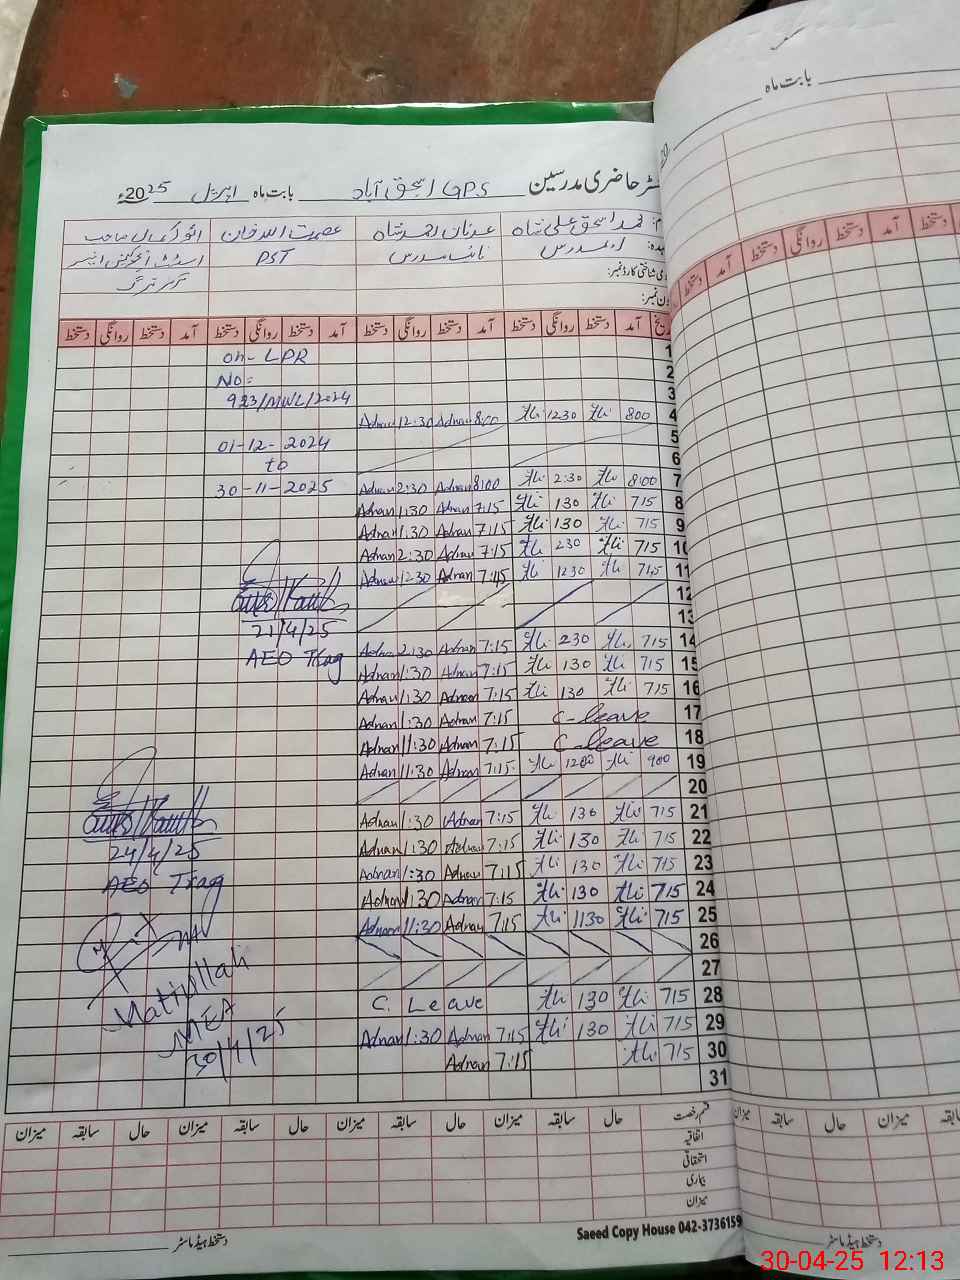 بابت ماہ
رجسٹر حاضری مدرسین GPS اسحق آباد بابت ماہ اپریل 2025ء
محمد اسحق علی شاہ عدنان احمد شاہ عصمت اللہ خان
نائب مدرس PST
شناختی کارڈ نمبر:
فون نمبر:
تاریخ آمد دستخط روانگی دستخط آمد دستخط روانگی دستخط آمد دستخط روانگی دستخط آمد دستخط روانگی دستخط
آمد دستخط روانگی دستخط آمد دستخط
1 on - LPR
2 No=
3 923/MWL/2024
4 800 1230 Adnan 8:00 Adnan 12:30
5 01-12-2024
6 to
7 8:00 2:30 Adnan 8:00 Adnan 2:30 30-11-2025
8 715 130 Adnan 7:15 Adnan 1:30
9 715 130 Adnan 7:15 Adnan 1:30
10 715 230 Adnan 7:15 Adnan 2:30
11 715 1230 Adnan 7:15 Adnan 12:30
12
13 21/4/25
14 715 230 Adnan 7:15 Adnan 2:30 AEO Trag
15 715 130 Adnan 7:15 Adnan 1:30
16 715 130 Adnan 7:15 Adnan 1:30
17 C-leave Adnan 7:15 Adnan 1:30
18 C-leave Adnan 7:15 Adnan 11:30
19 900 1200 Adnan 7:15 Adnan 11:30
20
21 715 130 Adnan 7:15 Adnan 1:30
22 715 130 Adnan 7:15 Adnan 1:30 24/4/25
23 715 130 Adnan 7:15 Adnan 1:30 AEO Trag
24 715 130 Adnan 7:15 Adnan 1:30
25 715 1130 Adnan 7:15 Adnan 11:30
26
27 Matiullah
28 715 130 C. Leave MEA
29 715 130 Adnan 7:15 Adnan 1:30 30/4/25
30 715 Adnan 7:15
31
قسم رخصت حال سابقہ میزان حال سابقہ میزان حال سابقہ میزان حال سابقہ میزان
اتفاقیہ
استحقاقی
بیماری
میزان
میزان سابقہ حال میزان سابقہ
Saeed Copy House 042-3736159
دستخط ہیڈ ماسٹر
دستخط ہیڈ ماسٹر
30-04-25 12:13